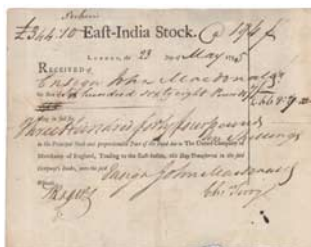 £344:10 East-India Stock. @ 194
LONDON, the 23 Day of May
RECEIVED of
Ensign John Macdonald
the Sum of Six hundred Sixty eight Pounds
being in full for
Three Hundred forty four pounds
ten Shillings
in the Principal Stock and proportionable Part of the Fund due to The United Company of
Merchants of England, Trading to the East-Indies, this Day Transferred in the said
Company's Books, unto the said Ensign John Macdonald
Witness